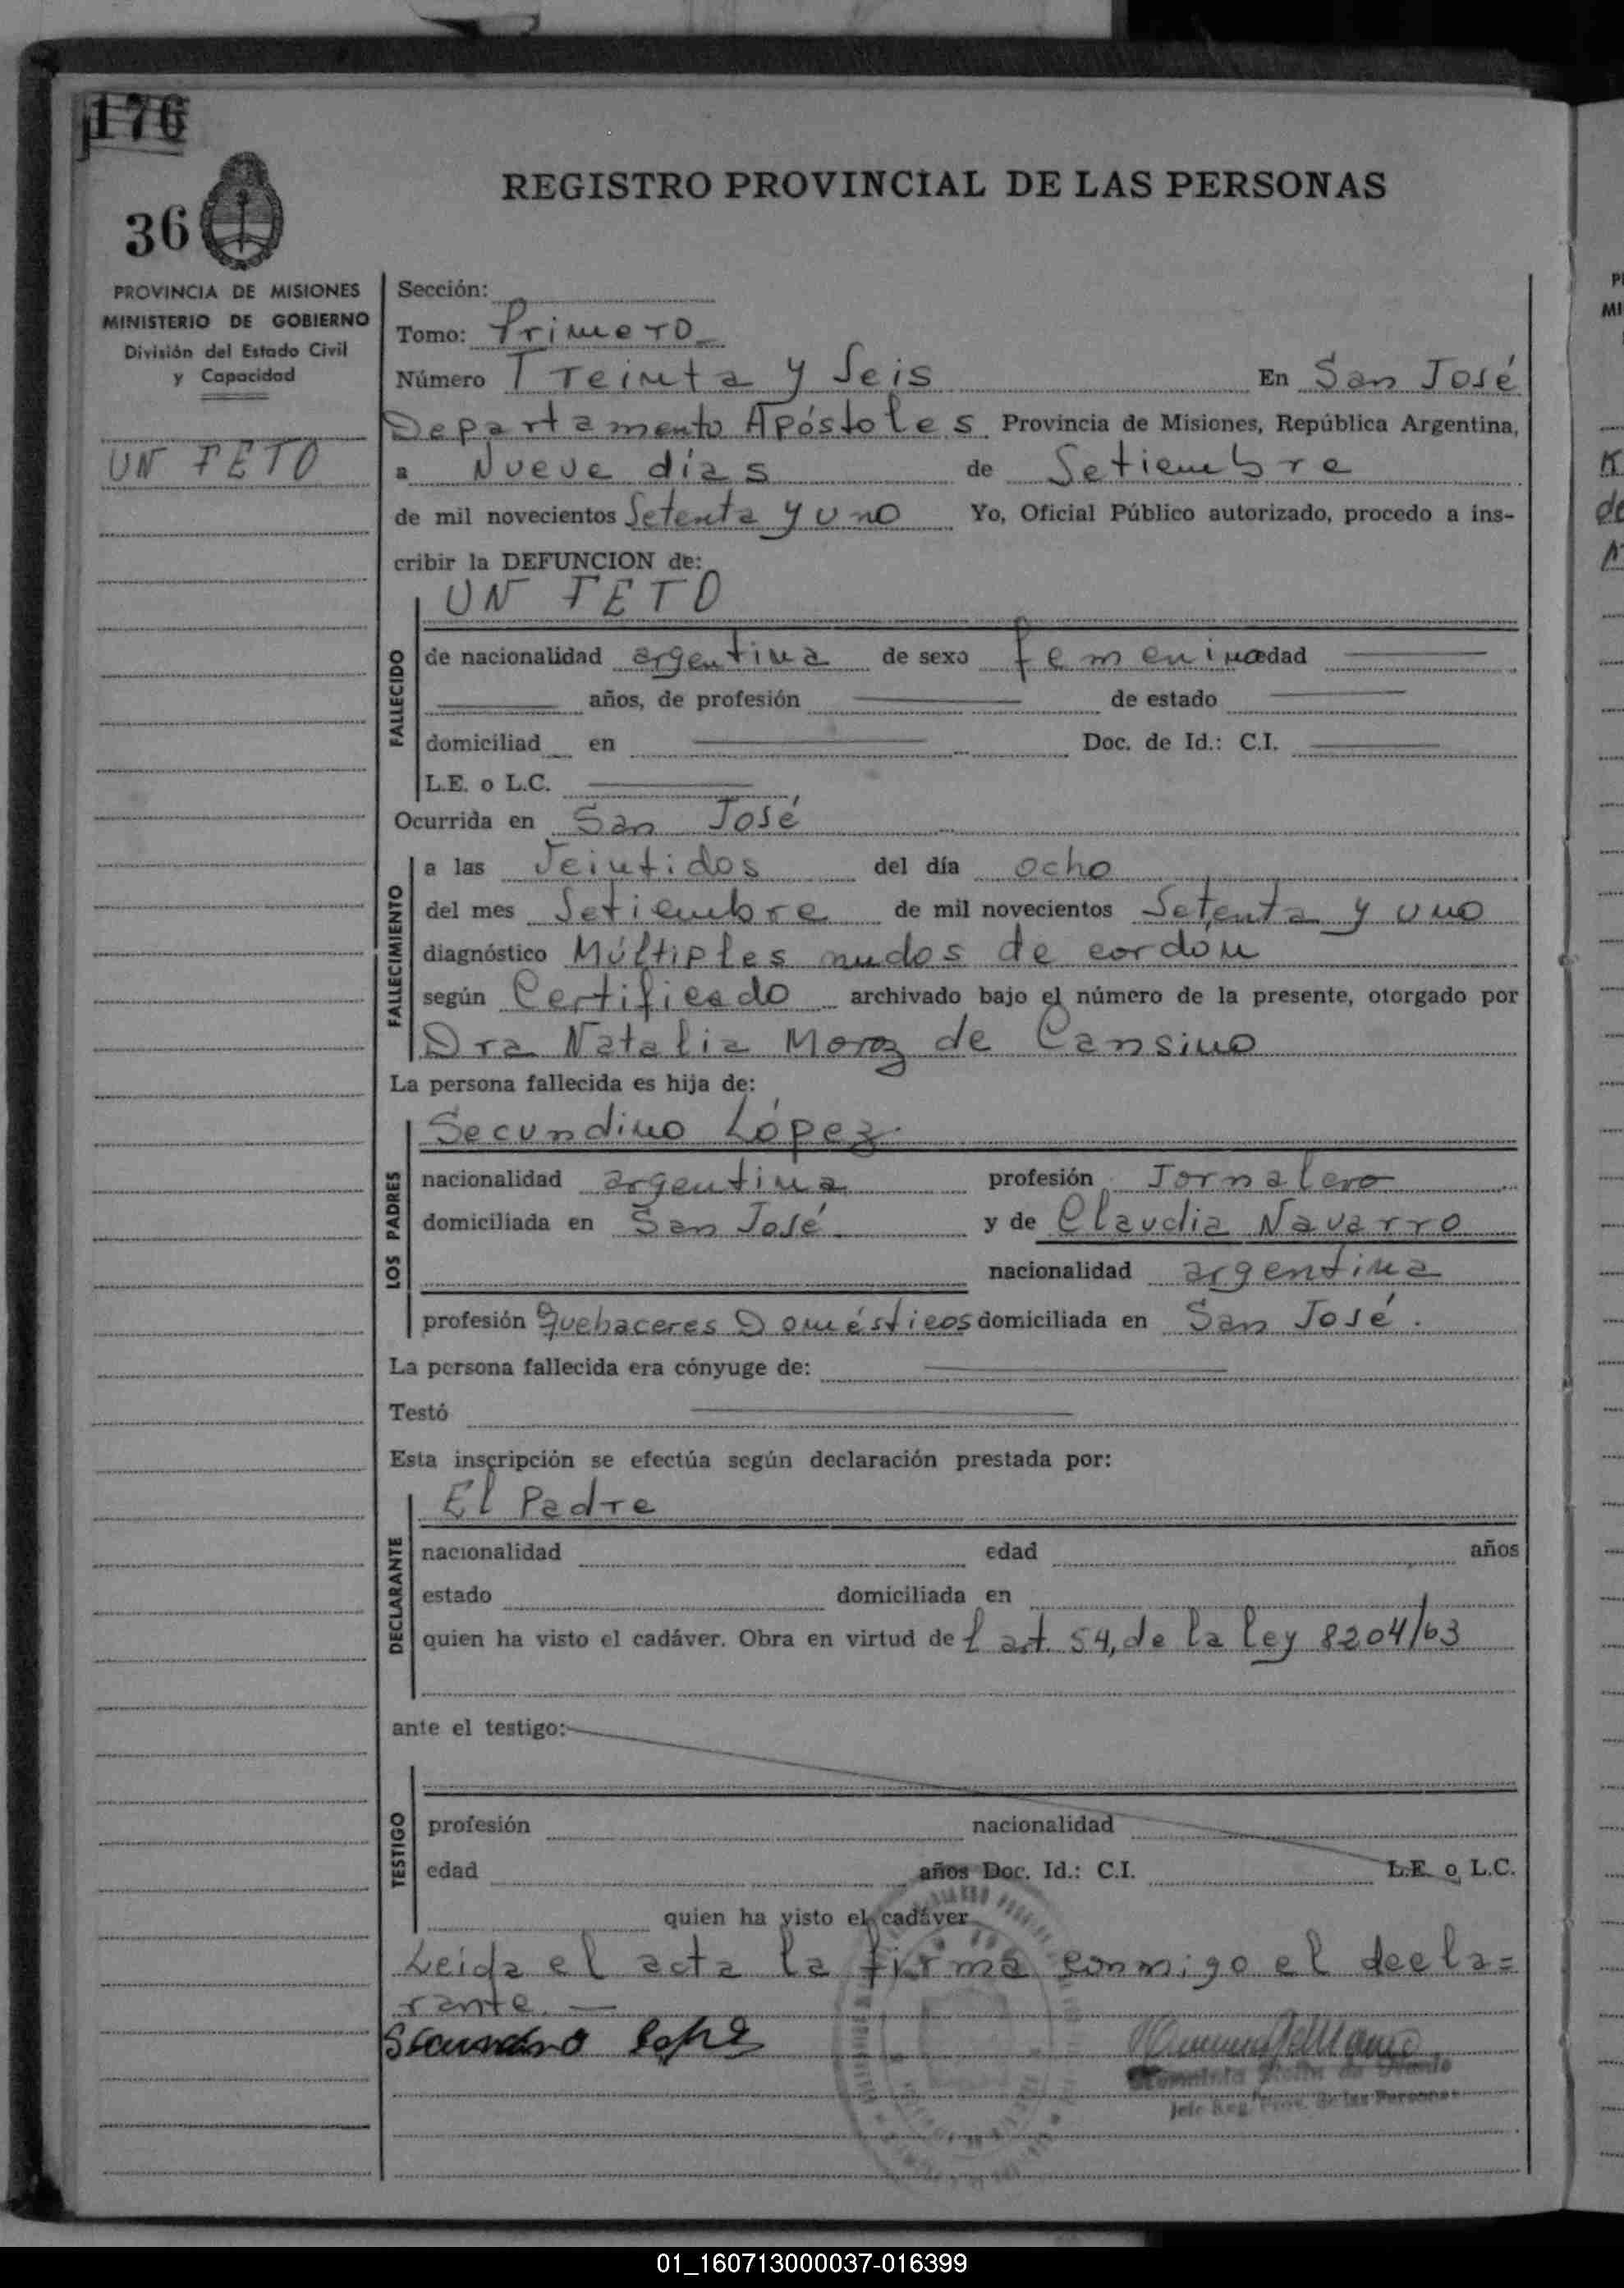 176
36
REGISTRO PROVINCIAL DE LAS PERSONAS
PROVINCIA DE MISIONES
MINISTERIO DE GOBIERNO
División del Estado Civil
y Capacidad
UN FETO
Sección:
Tomo: Primero
Número Treinta y Seis En San José
Departamento Apóstoles Provincia de Misiones, República Argentina,
a Nueve días de Setiembre
de mil novecientos Setenta y uno Yo, Oficial Público autorizado, procedo a ins-
cribir la DEFUNCION de:
UN FETO
FALLECIDO
de nacionalidad argentina de sexo femenino edad
años, de profesión de estado
domiciliad en Doc. de Id.: C.I.
L.E. o L.C.
Ocurrida en San José
FALLECIMIENTO
a las Veintidos del día ocho
del mes Setiembre de mil novecientos Setenta y uno
diagnóstico Múltiples nudos de cordon
según Certificado archivado bajo el número de la presente, otorgado por
Dra Natalia Moroz de Cansino
La persona fallecida es hija de:
LOS PADRES
Secundino López
nacionalidad argentina profesión Jornalero
domiciliada en San José y de Claudia Navarro
nacionalidad argentina
profesión Quehaceres Domésticos domiciliada en San José.
La persona fallecida era cónyuge de:
Testó
Esta inscripción se efectúa según declaración prestada por:
DECLARANTE
El Padre
nacionalidad edad años
estado domiciliada en
quien ha visto el cadáver. Obra en virtud de l art. 54, de la ley 8204/63
ante el testigo:
TESTIGO
profesión nacionalidad
edad años Doc. Id.: C.I. L.E. o L.C.
quien ha visto el cadáver
Leida el acta la firma conmigo el decla=
rante.
Secundino Lopez
Jefe Reg. Prov. de las Personas
01_160713000037-016399